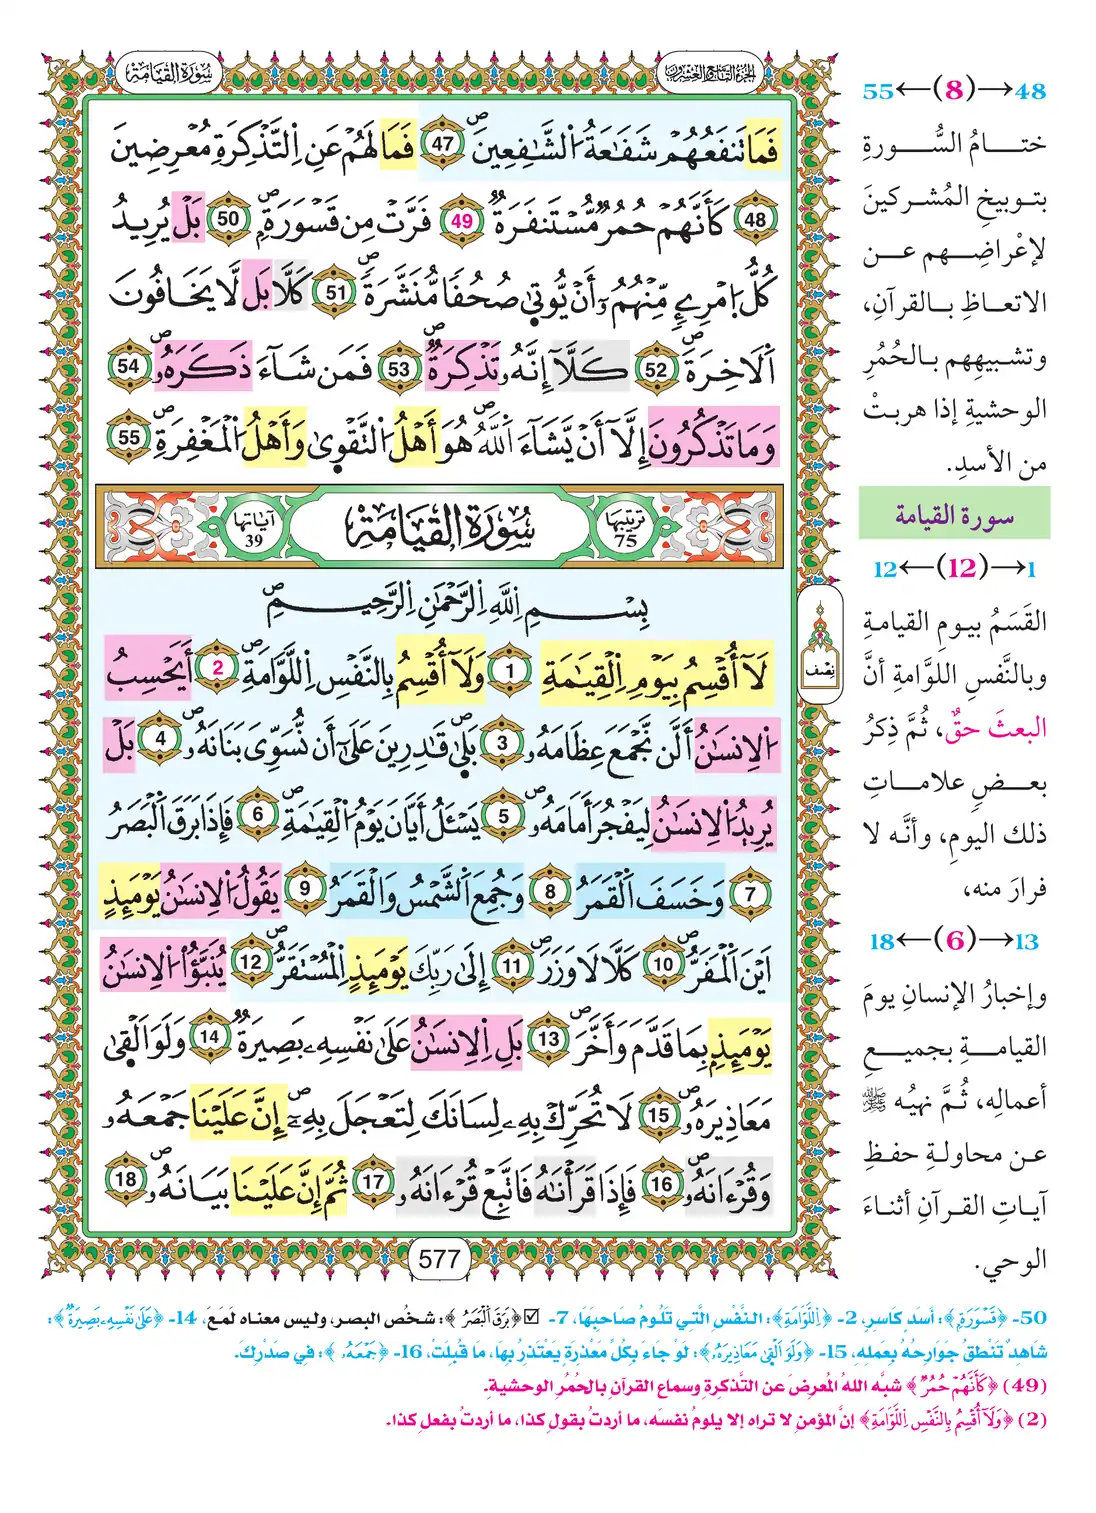 الجزء التاسع والعشرون
سورة القيامة
فَمَا تَنفَعُهُمْ شَفَاعَةُ اُلشَّٰفِعِينَ 47 فَمَا لَهُمْ عَنِ اِلتَّذْكِرَةِ مُعْرِضِينَ
48 كَأَنَّهُمْ حُمُرٌ مُّسْتَنفَرَةٌ 49 فَرَّتْ مِن قَسْوَرَةٍ 50 بَلْ يُرِيدُ
كُلُّ اُمْرِےٕ مِّنْهُمُۥٓ أَنْ يُّوتىٰ صُحُفاً مُّنَشَّرَةً 51 كَلَّا بَل لَّا يَخَافُونَ
اَلَاخِرَةَ 52 كَلَّآ إِنَّهُۥ تَذْكِرَةٌ 53 فَمَن شَآءَ ذَكَرَهُۥ 54
وَمَا تَذْكُرُونَ إِلَّآ أَنْ يَّشَآءَ اَللَّهُ هُوَ أَهْلُ اُلتَّقْوىٰ وَأَهْلُ اُلْمَغْفِرَةِ 55
ترتيبها 75
سُورَةُ القِيَامَةِ
آياتها 39
بِسْمِ اِللَّهِ اِلرَّحْمَٰنِ اِلرَّحِيمِ
لَآ أُقْسِمُ بِيَوْمِ اِلْقِيَٰمَةِ 1 وَلَآ أُقْسِمُ بِالنَّفْسِ اِللَّوَّامَةِ 2 أَيَحْسِبُ
اُلِانسَٰنُ أَلَّن نَّجْمَعَ عِظَامَهُۥ 3 بَلىٰ قَٰدِرِينَ عَلَىٰٓ أَن نُّسَوِّىَ بَنَانَهُۥ 4 بَلْ
يُرِيدُ اُلِانسَٰنُ لِيَفْجُرَ أَمَامَهُۥ 5 يَسْـَٔلُ أَيَّانَ يَوْمُ اُلْقِيَٰمَةِ 6 فَإِذَا بَرَقَ اَلْبَصَرُ
7 وَخَسَفَ اَلْقَمَرُ 8 وَجُمِعَ اَلشَّمْسُ وَالْقَمَرُ 9 يَقُولُ اُلِانسَٰنُ يَوْمَئِذٍ
اَيْنَ اَلْمَفَرُّ 10 كَلَّا لَا وَزَرَ 11 إِلَىٰ رَبِّكَ يَوْمَئِذٍ اِلْمُسْتَقَرُّ 12 يُنَبَّؤُاْ اُلِانسَٰنُ
يَوْمَئِذٍۢ بِمَا قَدَّمَ وَأَخَّرَ 13 بَلِ اِلِانسَٰنُ عَلَىٰ نَفْسِهِۦ بَصِيرَةٌ 14 وَلَوَ اَلْقىٰ
مَعَاذِيرَهُۥ 15 لَا تُحَرِّكْ بِهِۦ لِسَانَكَ لِتَعْجَلَ بِهِۦٓ إِنَّ عَلَيْنَا جَمْعَهُۥ
وَقُرْءَانَهُۥ 16 فَإِذَا قَرَأْنَٰهُ فَاتَّبِعْ قُرْءَانَهُۥ 17 ثُمَّ إِنَّ عَلَيْنَا بَيَانَهُۥ 18
577
نصف
48→(8)←55
ختـامُ السُّـورةِ
بتوبيخِ المُشركينَ
لإعْراضِـهم عـن
الاتعاظِ بالقرآنِ،
وتشبيهِهم بالحُمُرِ
الوحشيةِ إذا هربتْ
من الأسدِ.
سورة القيامة
1→(12)←12
القَسَمُ بيومِ القيامةِ
وبالنَّفسِ اللوَّامةِ أنَّ
البعثَ حقٌ، ثُمَّ ذِكرُ
بعـضِ علامـاتِ
ذلك اليومِ، وأنَّه لا
فرارَ منه،
13→(6)←18
وإخبارُ الإنسانِ يومَ
القيامـةِ بجميـعِ
أعمالِه، ثُمَّ نهيُه ﷺ
عن محاولةِ حفظِ
آياتِ القرآنِ أثناءَ
الوحي.
50- ﴿قَسْوَرَةٍ﴾: أسَدٍ كَاسِرٍ، 2- ﴿اِللَّوَّامَةِ﴾: النَّفْسِ الَّتِي تَلُومُ صَاحِبَهَا، 7- ☑﴿بَرَقَ اَلْبَصَرُ﴾: شخُص البصر، وليس معناه لَمَعَ، 14- ﴿عَلَىٰ نَفْسِهِۦ بَصِيرَةٌ﴾:
شاهِدٌ تَنْطقُ جَوَارِحُهُ بِعَملِهِ، 15- ﴿وَلَوَ اَلْقىٰ مَعَاذِيرَهُۥ﴾: لَوْ جَاءَ بِكُلِّ مَعْذرةٍ يَعْتَذرُ بِهَا، مَا قُبِلَتْ، 16- ﴿جَمْعَهُۥ﴾: فِي صَدْرِكَ.
(49) ﴿كَأَنَّهُمْ حُمُرٌ﴾ شبَّه اللهُ المُعرِضَ عن التَّذكرةِ وسماعِ القرآنِ بالحُمُرِ الوحشيةِ.
(2) ﴿وَلَآ أُقْسِمُ بِالنَّفْسِ اِللَّوَّامَةِ﴾ إنَّ المؤمنَ لا تراه إلا يلومُ نفسَه، ما أردتُ بقولِ كذا، ما أردتُ بفعلِ كذا.